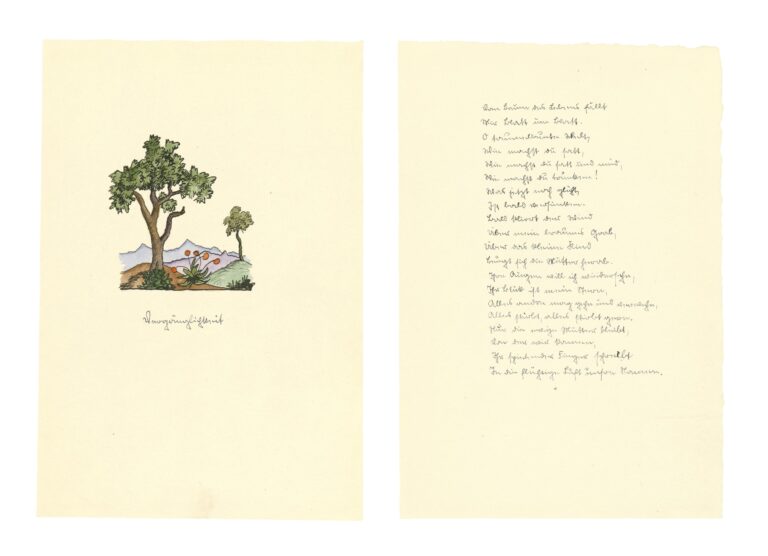 Vergänglichkeit
Vom Baum des Lebens fällt
Mir Blatt um Blatt.
O taumelbunte Welt,
Wie machst du satt,
Wie machst du satt und müd,
Wie machst du trunken!
Was jetzt noch glüht,
Ist bald versunken.
Bald klirrt der Wind
Über mein braunes Grab,
Über das kleine Kind
Beugt sich die Mutter herab.
Ihre Augen will ich wiedersehn,
Ihr Blick ist mein Stern,
Alles andre mag gehn und verwehn,
Alles stirbt, alles stirbt gern.
Nur die ewige Mutter bleibt,
Von der wir kamen,
Ihr spielender Finger schreibt
In die flüchtige Luft unsre Namen.